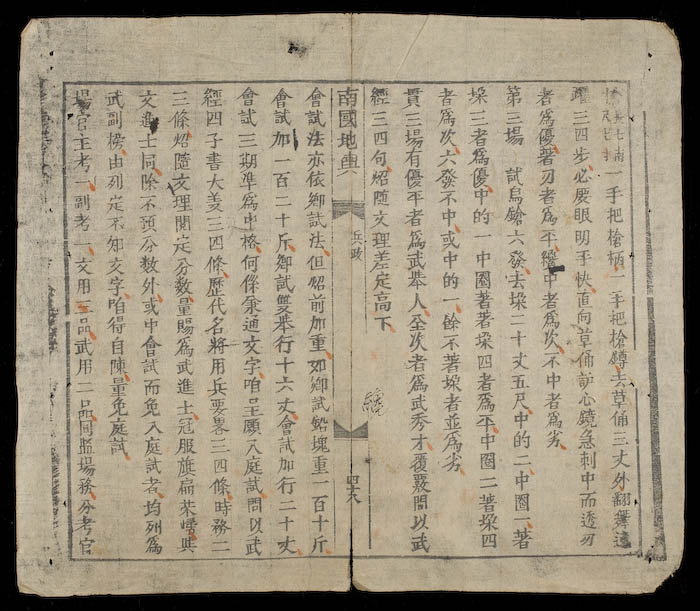 一手把槍柄一手把槍鐏去草俑三丈外翻舞進
躍三四步必要眼明手快直向草俑節心鏡急刺中而透刃
者為優著刃者為平纔中者為次不中者為劣
第三場 試鳥鎗六發去垜二十丈五尺中的二中圈一著
垜三者為優中的一中圈著著垜四者為平中圈二著垜四
者為次六發不中或中的一餘不著垜者並為劣
貫三場有優平者為武舉人全次者為武秀才覆覈問以武
經三四句炤隨文理差定高下
南國地輿 兵政 四十八
會試法亦依鄉試法但炤前加重如鄉試鉛塊重一百十斤
會試加一百二十斤鄉試雙舉行十六丈會試加行二十丈
會試三期準為中格何係兼通文字咱呈願入庭試問以武
經四子書大義三四條歷代名將用兵要畧三四條時務二
三條炤隨文理閱定分數量賜為武進士冠服旗扁榮歸與
文進士同除不預分數外或中會試而免入庭試者均列為
武副榜由列定不知文字咱得自陳量免庭試
場官主考一副考一文用三品武用二品同監場務分考官